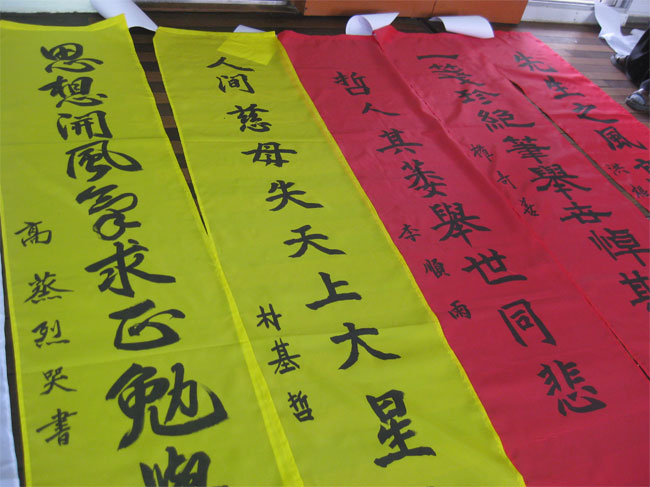 思想開風氣求正勉
高蒸烈哭書
人間慈母失天上大星
朴基哲
哲人其萎舉世同悲
李順雨
一箋珍絕筆舉世悼斯
權奇善
先生之風
洪